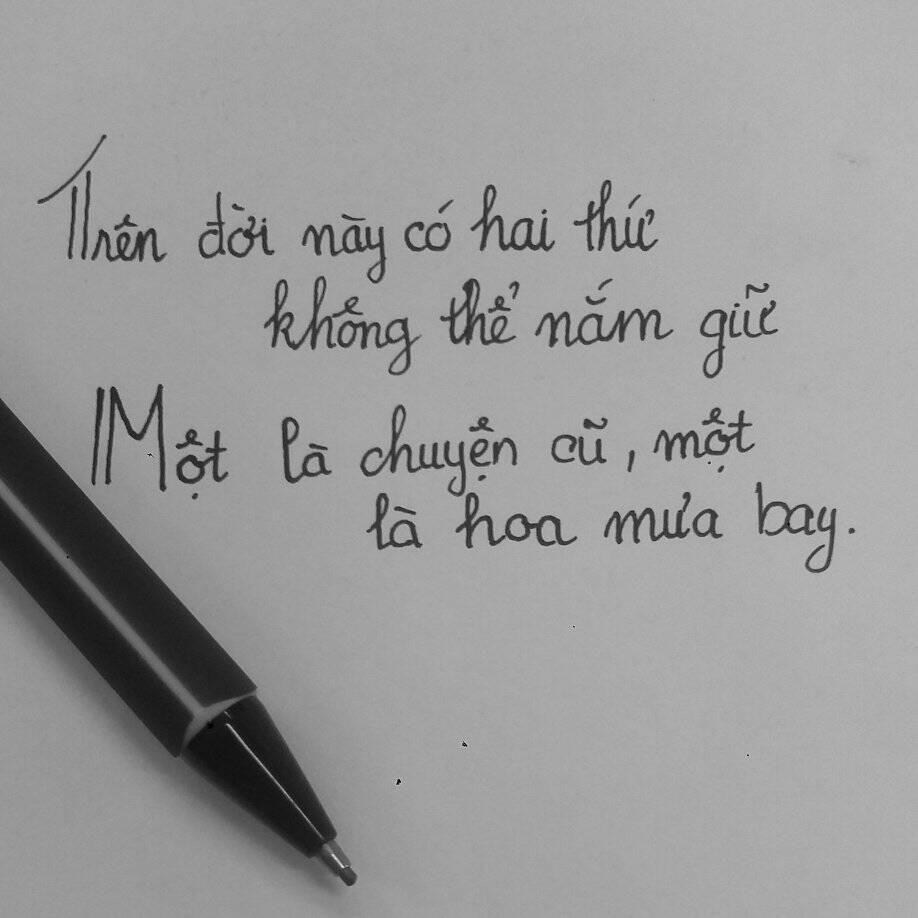 Trên đời này có hai thứ
không thể nắm giữ
Một là chuyện cũ, một
là hoa mưa bay.